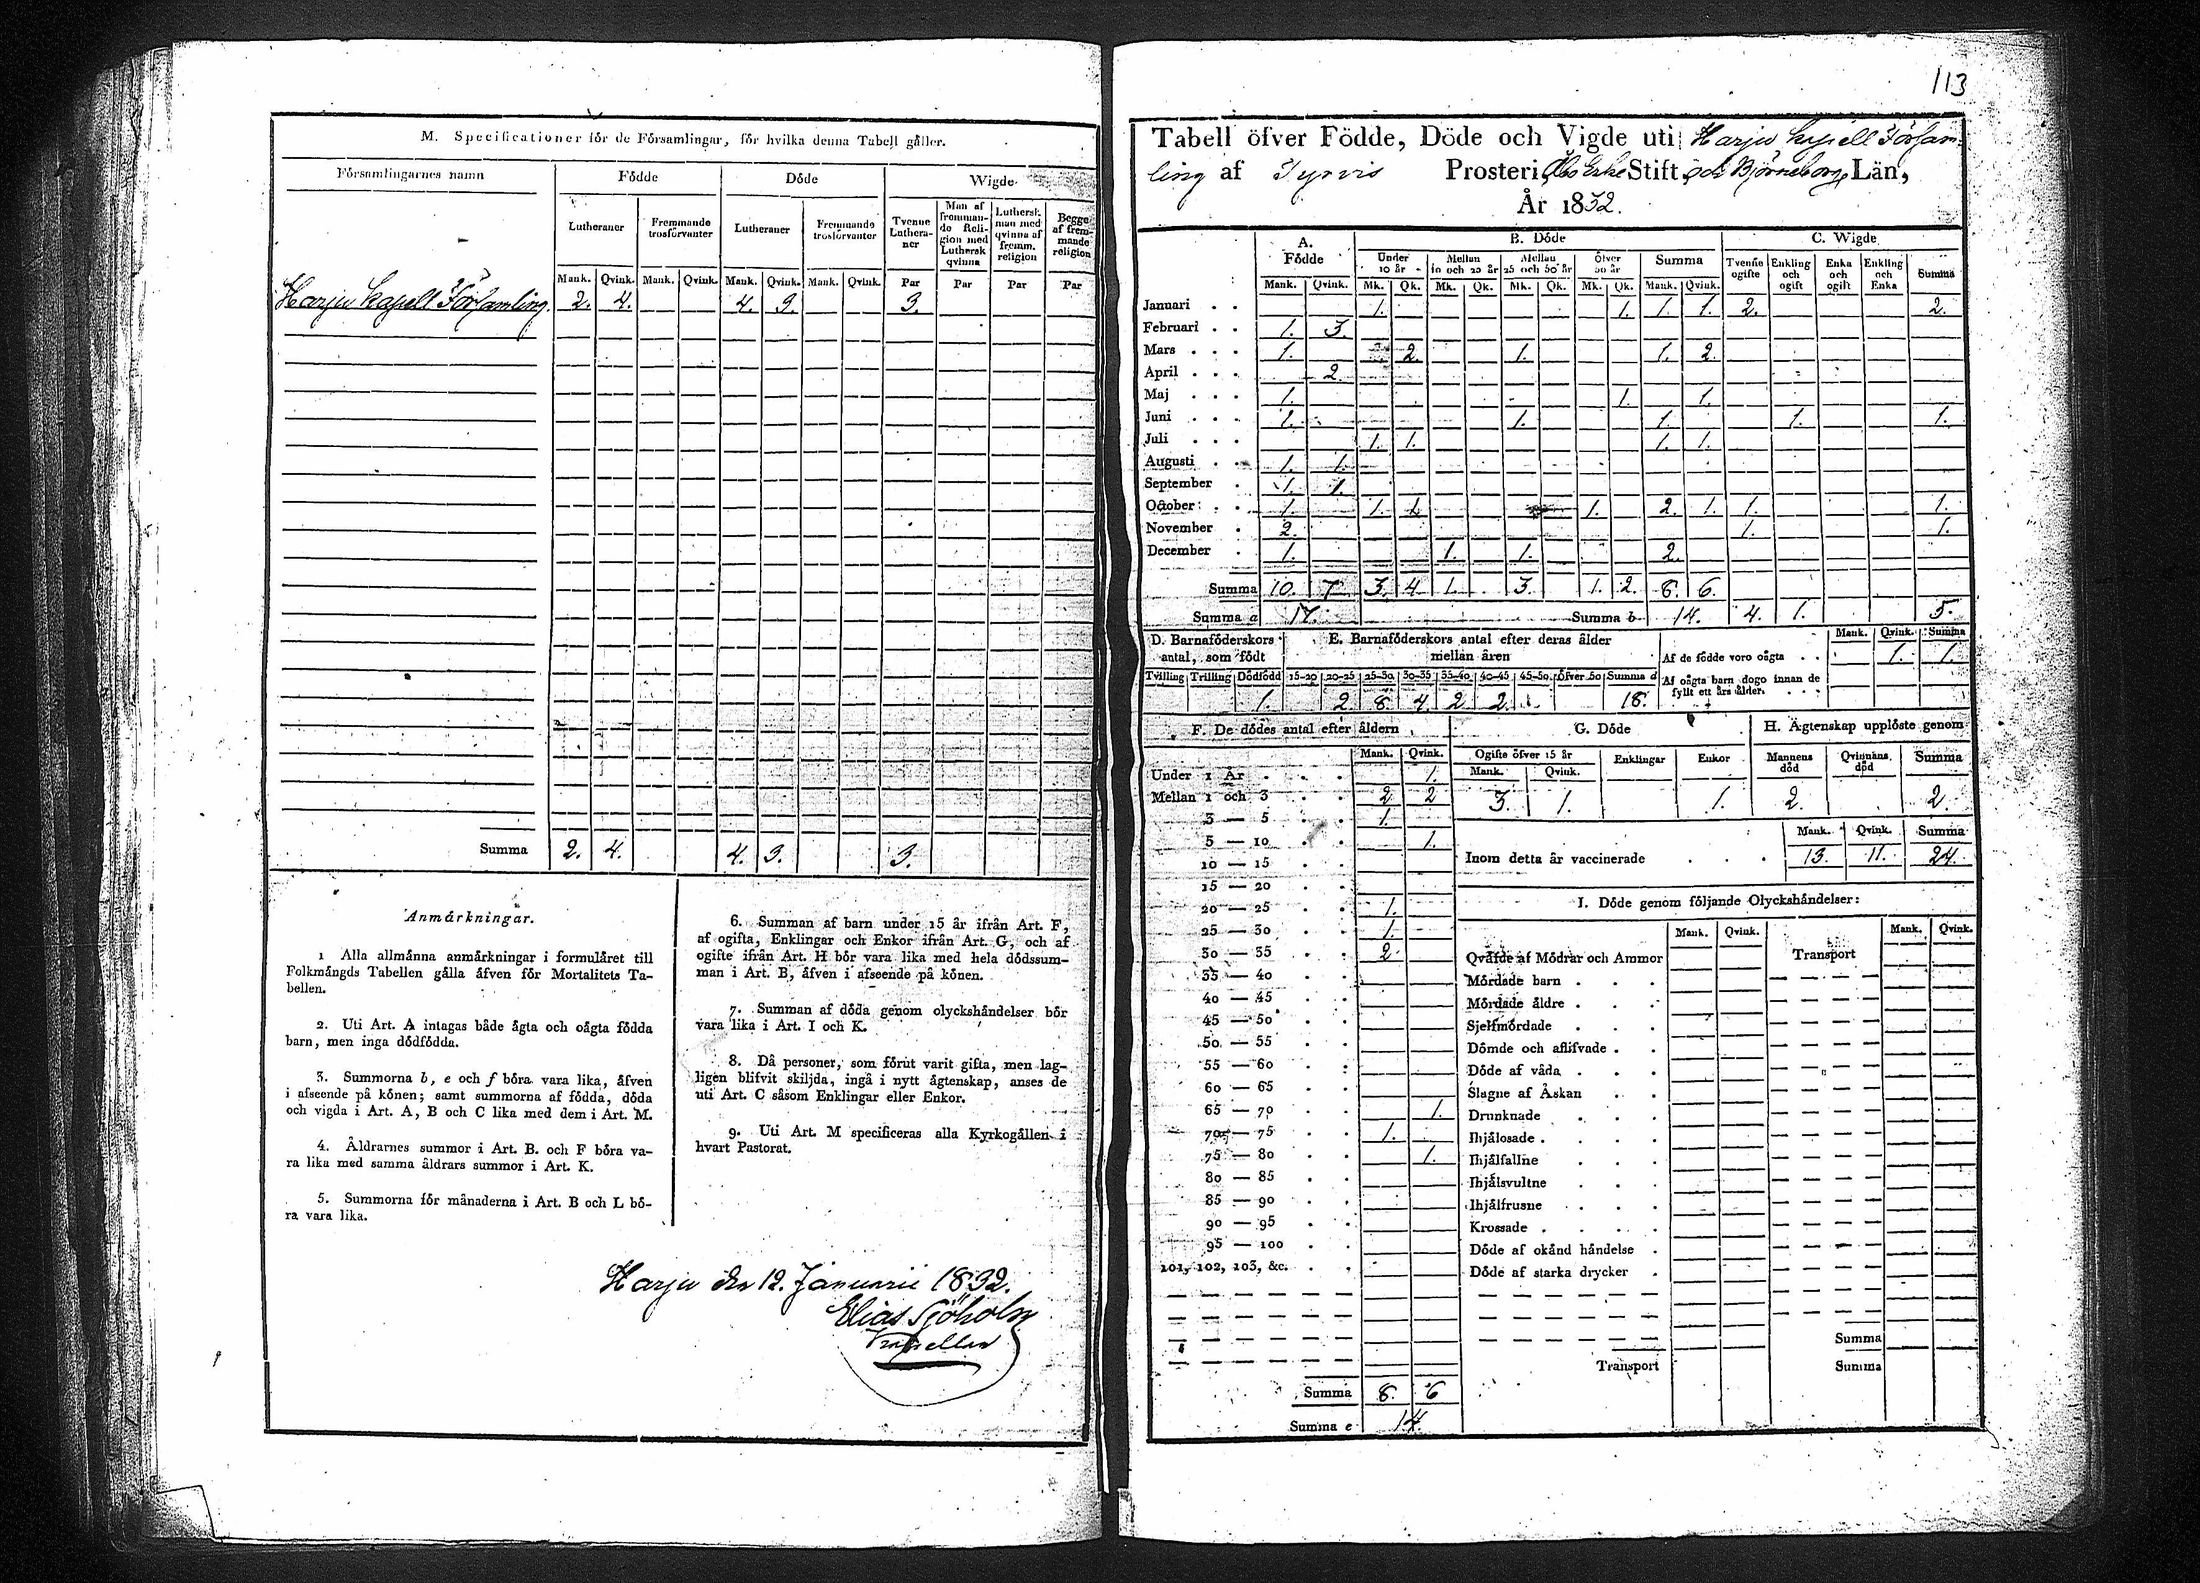 M. Specificationer för de Församlingar, för hvilka denna Tabell gåller.
Församlingarnes namn
Födde Döde Wigde
Lutheraner Fremmande trosförvanter Lutheraner Fremmande trosförvanter Tvenne Lutheraner Man af frommande Religion med Luthersk qvinna Luthersk man med qvinna af fremm. religion Begge af fremmande religion
Mank. Qvink. Mank. Qvink. Mank. Qvink. Mank. Qvink. Par Par Par Par
Harju kapell Församling. 2. 4. 4. 3. 3.
Summa 2. 4. 4. 3. 3.
Anmårkningar.
1 Alla allmånna anmårkningar i formulåret till
Folkmångds Tabellen gålla åfven för Mortalitets Ta-
bellen.
2. Uti Art. A intagas både ågta och oågta födda
barn, men inga dödfödda.
3. Summorna b, e och f böra vara lika, åfven
i afseende på könen; samt summorna af födda, döda
och vigda i Art. A, B och C lika med dem i Art. M.
4. Åldrarnes summor i Art. B. och F böra va-
ra lika med samma åldrars summor i Art. K.
5. Summorna för månaderna i Art. B och L bö-
ra vara lika.
6. Summan af barn under 15 år ifrån Art. F,
af ogifta, Enklingar och Enkor ifrån Art. G, och af
ogifte ifrån Art. H bör vara lika med hela dödssum-
man i Art. B, åfven i afseende på könen.
7. Summan af döda genom olyckshåndelser bör
vara lika i Art. I och K.
8. Då personer, som förut varit gifta, men lag-
ligen blifvit skiljda, ingå i nytt ågtenskap, anses de
uti Art. C såsom Enklingar eller Enkor.
9. Uti Art. M specificeras alla Kyrkogållen i
hvart Pastorat.
Harju den 12. Januarii 1832.
Elias Sjöholm
Capellan
113
Tabell öfver Födde, Döde och Vigde uti Harju kapell Försam-
ling af Tyrvis Prosteri, Åbo Erke Stift och Björneborgs Län,
År 1832.
A. Födde B. Döde C. Wigde
Under 10 år Mellan 10 och 25 år Mellan 25 och 50 år Öfver 50 år Summa Tvenne ogifte Enkling och ogift Enka och ogift Enkling och Enka Summa
Mank. Qvink. Mk. Qk. Mk. Qk. Mk. Qk. Mk. Qk. Mank. Qvink.
Januari 1. 1. 1. 1. 2. 2.
Februari 1. 3.
Mars 1. 2. 1. 1. 2.
April 2.
Maj 1. 1. 1.
Juni 1. 1. 1. 1. 1.
Juli 1. 1. 1. 1.
Augusti 1. 1.
September 1. 1.
October 1. 1. 1. 1. 2. 1. 1. 1.
November 2. 1. 1.
December 1. 1. 1. 2.
Summa 10. 7. 3. 4. 1. 3. 1. 2. 8. 6.
Summa a 17. Summa b 14. 4. 1. 5.
D. Barnaföderskors antal, som födt
Tvilling Trilling Dödfödd
1.
E. Barnaföderskors antal efter deras ålder mellan åren
15-20 20-25 25-30 30-35 35-40 40-45 45-50 Öfver 50 Summa d
2 8. 4. 2 2. 18.
Mank. Qvink. Summa
Af de födde voro oågta 1. 1.
Af oågta barn dogo innan de
fyllt ett års ålder.
F. De dödes antal efter åldern
Mank. Qvink.
Under 1 År 1.
Mellan 1 och 3 2 2
3 — 5 1.
5 — 10 1.
10 — 15
15 — 20
20 — 25 1.
25 — 30 1.
30 — 35 2.
35 — 40
40 — 45
45 — 50
50 — 55
55 — 60
60 — 65
65 — 70 1.
70 — 75 1.
75 — 80 1.
80 — 85
85 — 90
90 — 95
95 — 100
101, 102, 103, &c.
Summa 8. 6
Summa e 14.
G. Döde
Ogifte öfver 15 år Enklingar Enkor
Mank. Qvink.
3. 1. 1.
H. Ågtenskap upplöste genom
Mannens död Qvinnans död Summa
2. 2.
Mank. Qvink. Summa
Inom detta år vaccinerade 13. 11. 24.
I. Döde genom följande Olyckshåndelser:
Mank. Qvink. Mank. Qvink.
Qvåfde af Mödrar och Ammor Transport
Mördade barn
Mördade åldre
Sjelfmördade
Dömde och aflifvade
Döde af våda
Slagne af Åskan
Drunknade
Ihjålosade
Ihjålfallne
Ihjålsvultne
Ihjålfrusne
Krossade
Döde af okånd håndelse
Döde af starka drycker
Summa
Transport Summa